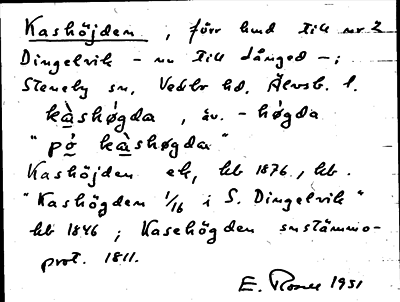 Kashöjden, förr hmd till nr 2
Dingelvik – nu till Långed –;
Steneby sn, Vedbo hd, Älvsb. l.
kàshǿgda, äv. -hǿgda
"pǿ kàshøgdan"
Kashöjden ek, hb 1876, kb.
"Kashögden 1/16 i S. Dingelvik"
hb 1846; Kasehögden snstämmo-
prot. 1811.
E. 1951